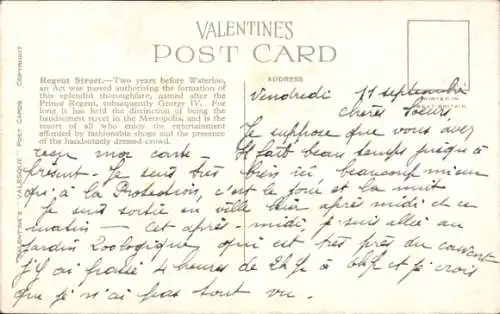 VALENTINE'S
POST CARD
Regent Street.—Two years before Waterloo,
an Act was passed authorising the formation of
this splendid thoroughfare, named after the
Prince Regent, subsequently George IV. For
long is has held the distinction of being the
handsomest street in the Metropolis, and is the
resort of all who enjoy the entertainment
afforded by fashionable shops and the presence
of the handsomely dressed crowd.
ADDRESS
PRINTED IN
GREAT BRITAIN
VALENTINE'S "VALESQUE" POST CARDS COPYRIGHT
Vendredi 11 septembre
chères soeurs
Je suppose que vous avez
reçu mon carte - Il fait beau temps jusqu'à
présent - Je suis très bien ici, beaucoup mieux
qu'à la Protection, c'est le jour et la nuit
Je suis sortie en ville hier après midi et ce
matin - Cet après-midi, je suis allée au
Jardin Zoologique, qui est très près du couvent
J'y ai passé 4 heures de 2h½ à 6h½ et je crois
que je n'ai pas tout vu.